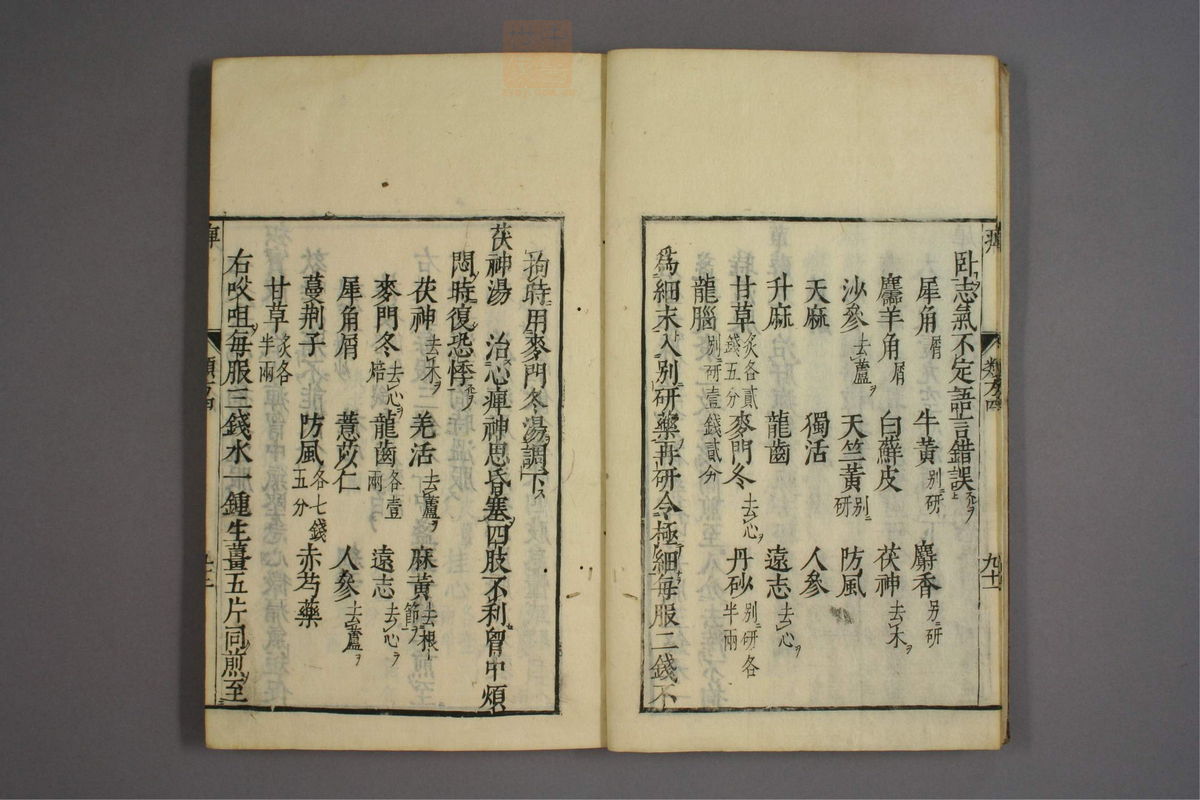 臥志氣不定語言錯誤
犀角屑 牛黃別研 麝香另研
麢羊角屑 白蘚皮 茯神去木
沙參去蘆 天竺黃別研 防風
天麻 獨活 人參
升麻 龍齒 遠志去心
甘草炙各貳錢五分 麥門冬去心 丹砂別研各半兩
龍腦別研壹錢貳分
爲細末入別研藥再研令極細每服二錢不
拘時用麥門冬湯調下
茯神湯 治心痺神思昏塞四肢不利胷中煩
悶時復恐悸
茯神去木 羌活去蘆 麻黃去根節
麥門冬去心焙 龍齒各壹兩 遠志去心
犀角屑 薏苡仁 人參去蘆
蔓荆子 防風各七錢五分 赤芍藥
甘草炙各半兩
右㕮咀每服三錢水一鍾生薑五片同煎至
痺
類方四